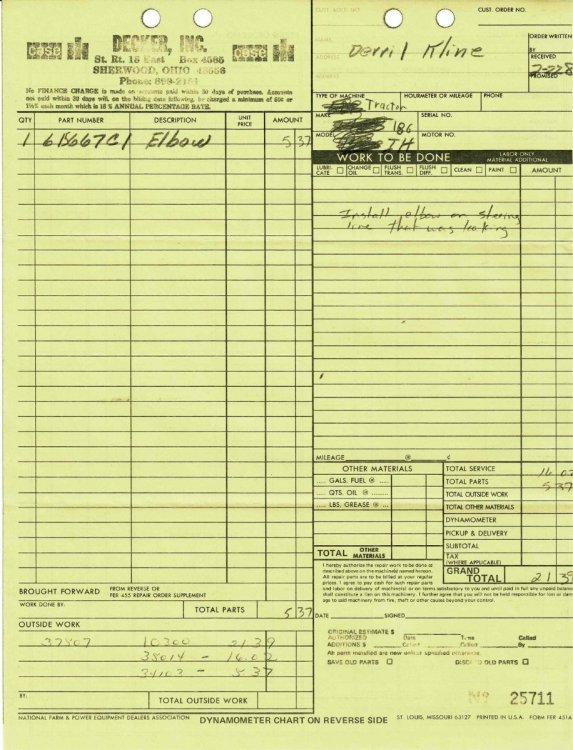 CUST. ORDER NO.
case IH DECKER, INC. case IH
St. Rt. 18 East Box 4585
SHERWOOD, OHIO 43556
Phone:
No FINANCE CHARGE is made on accounts paid within 30 days of purchase. Accounts
not paid within 30 days will, on the billing date following, be charged a minimum of 50¢ or
1½% each month which is 18 % ANNUAL PERCENTAGE RATE.
NAME
ADDRESS
Derril Kline
ORDER WRITTEN
BY
RECEIVED
PROMISED
TYPE OF MACHINE
HOURMETER OR MILEAGE
PHONE
Tractor
MAKE
SERIAL NO.
186
MODEL
IH
MOTOR NO.
QTY PART NUMBER DESCRIPTION UNIT PRICE AMOUNT
1 618667C1 Elbow 5 37
WORK TO BE DONE LABOR ONLY MATERIAL ADDITIONAL
LUBRICATE CHANGE OIL FLUSH TRANS. FLUSH DIFF. CLEAN PAINT AMOUNT
Install elbow on steering
line that was leaking
MILEAGE @ ¢
OTHER MATERIALS
GALS. FUEL @
QTS. OIL @
LBS. GREASE @
TOTAL OTHER MATERIALS
TOTAL SERVICE 16 02
TOTAL PARTS 5 37
TOTAL OUTSIDE WORK
TOTAL OTHER MATERIALS
DYNAMOMETER
PICKUP & DELIVERY
SUBTOTAL
TAX (WHERE APPLICABLE)
GRAND TOTAL 21 39
I hereby authorize the repair work to be done as
described above on the machine(s) named hereon.
All repair parts are to be billed at your regular
prices. I agree to pay cash for such repair parts
and labor on delivery of machine(s) or on terms satisfactory to you and until paid in full any unpaid balance
shall constitute a lien on this machinery. I further agree that you will not be held responsible for loss or dam-
age to said machinery from fire, theft or other causes beyond your control.
BROUGHT FORWARD FROM REVERSE OR PER 455 REPAIR ORDER SUPPLEMENT
WORK DONE BY:
TOTAL PARTS 5 37
DATE SIGNED
OUTSIDE WORK
37807 10300 21.39
38014 - 16.02
34103 - 5.37
BY:
TOTAL OUTSIDE WORK
ORIGINAL ESTIMATE $
AUTHORIZED ADDITIONS $ Date Time Called By
All parts installed are new unless specified otherwise.
SAVE OLD PARTS DISCARD OLD PARTS
No 25711
NATIONAL FARM & POWER EQUIPMENT DEALERS ASSOCIATION DYNAMOMETER CHART ON REVERSE SIDE ST. LOUIS, MISSOURI 63127 PRINTED IN U.S.A. FORM FER 451A